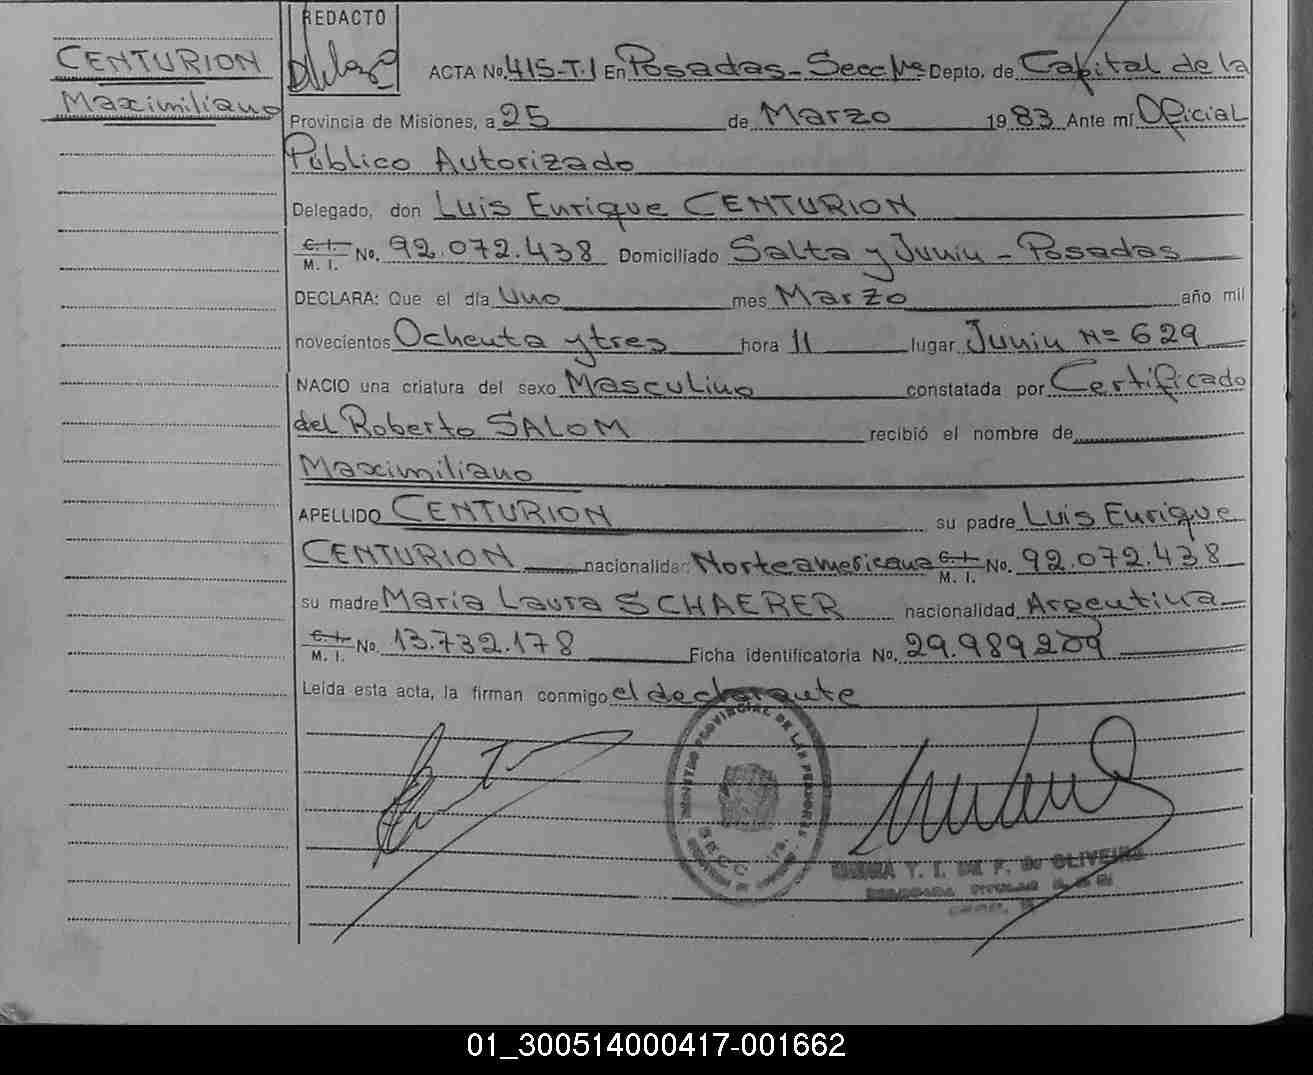 CENTURION
Maximiliano
REDACTO
ACTA No. 415-T.I En Posadas - Secc 1ra Depto. de Capital de la
Provincia de Misiones, a 25 de Marzo 1983 Ante mí Oficial
Público Autorizado
Delegado, don Luis Enrique CENTURION
C. I. M. I. No. 92.072.438 Domiciliado Salta y Junin - Posadas
DECLARA: Que el día Uno mes Marzo año mil
novecientos Ochenta y tres hora 11 lugar Junin Nº 629
NACIO una criatura del sexo Masculino constatada por Certificado
del Roberto SALOM recibió el nombre de
Maximiliano
APELLIDO CENTURION su padre Luis Enrique
CENTURION nacionalidad Norteamericana C. I. M. I. No. 92.072.438
su madre Maria Laura SCHAERER nacionalidad Argentina
C. I. M. I. No. 13.732.178 Ficha identificatoria No. 29.989.209
Leída esta acta, la firman conmigo el declarante
PROVINCIAL DE LAS PERSONAS
SECC.
Y. I. DE F. DE OLIVEIRA
TITULAR
01_300514000417-001662